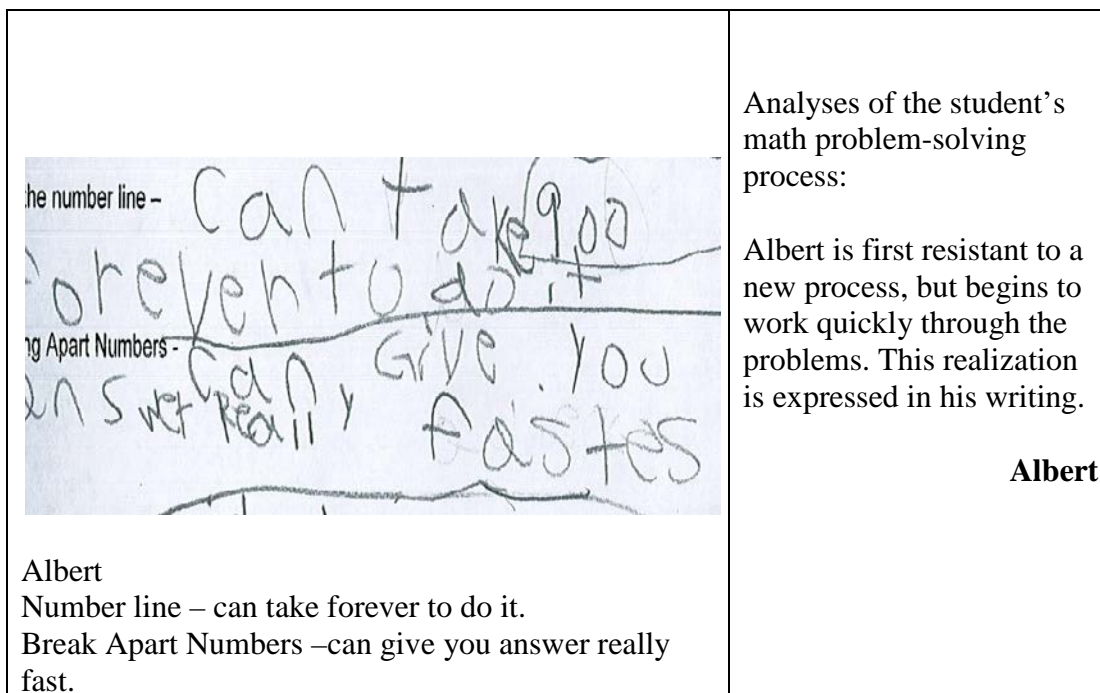 he number line – can take 9,00
forever to do it
ng Apart Numbers - can Give you
answer Really fastes
Albert
Number line – can take forever to do it.
Break Apart Numbers –can give you answer really
fast.
Analyses of the student's
math problem-solving
process:
Albert is first resistant to a
new process, but begins to
work quickly through the
problems. This realization
is expressed in his writing.
Albert